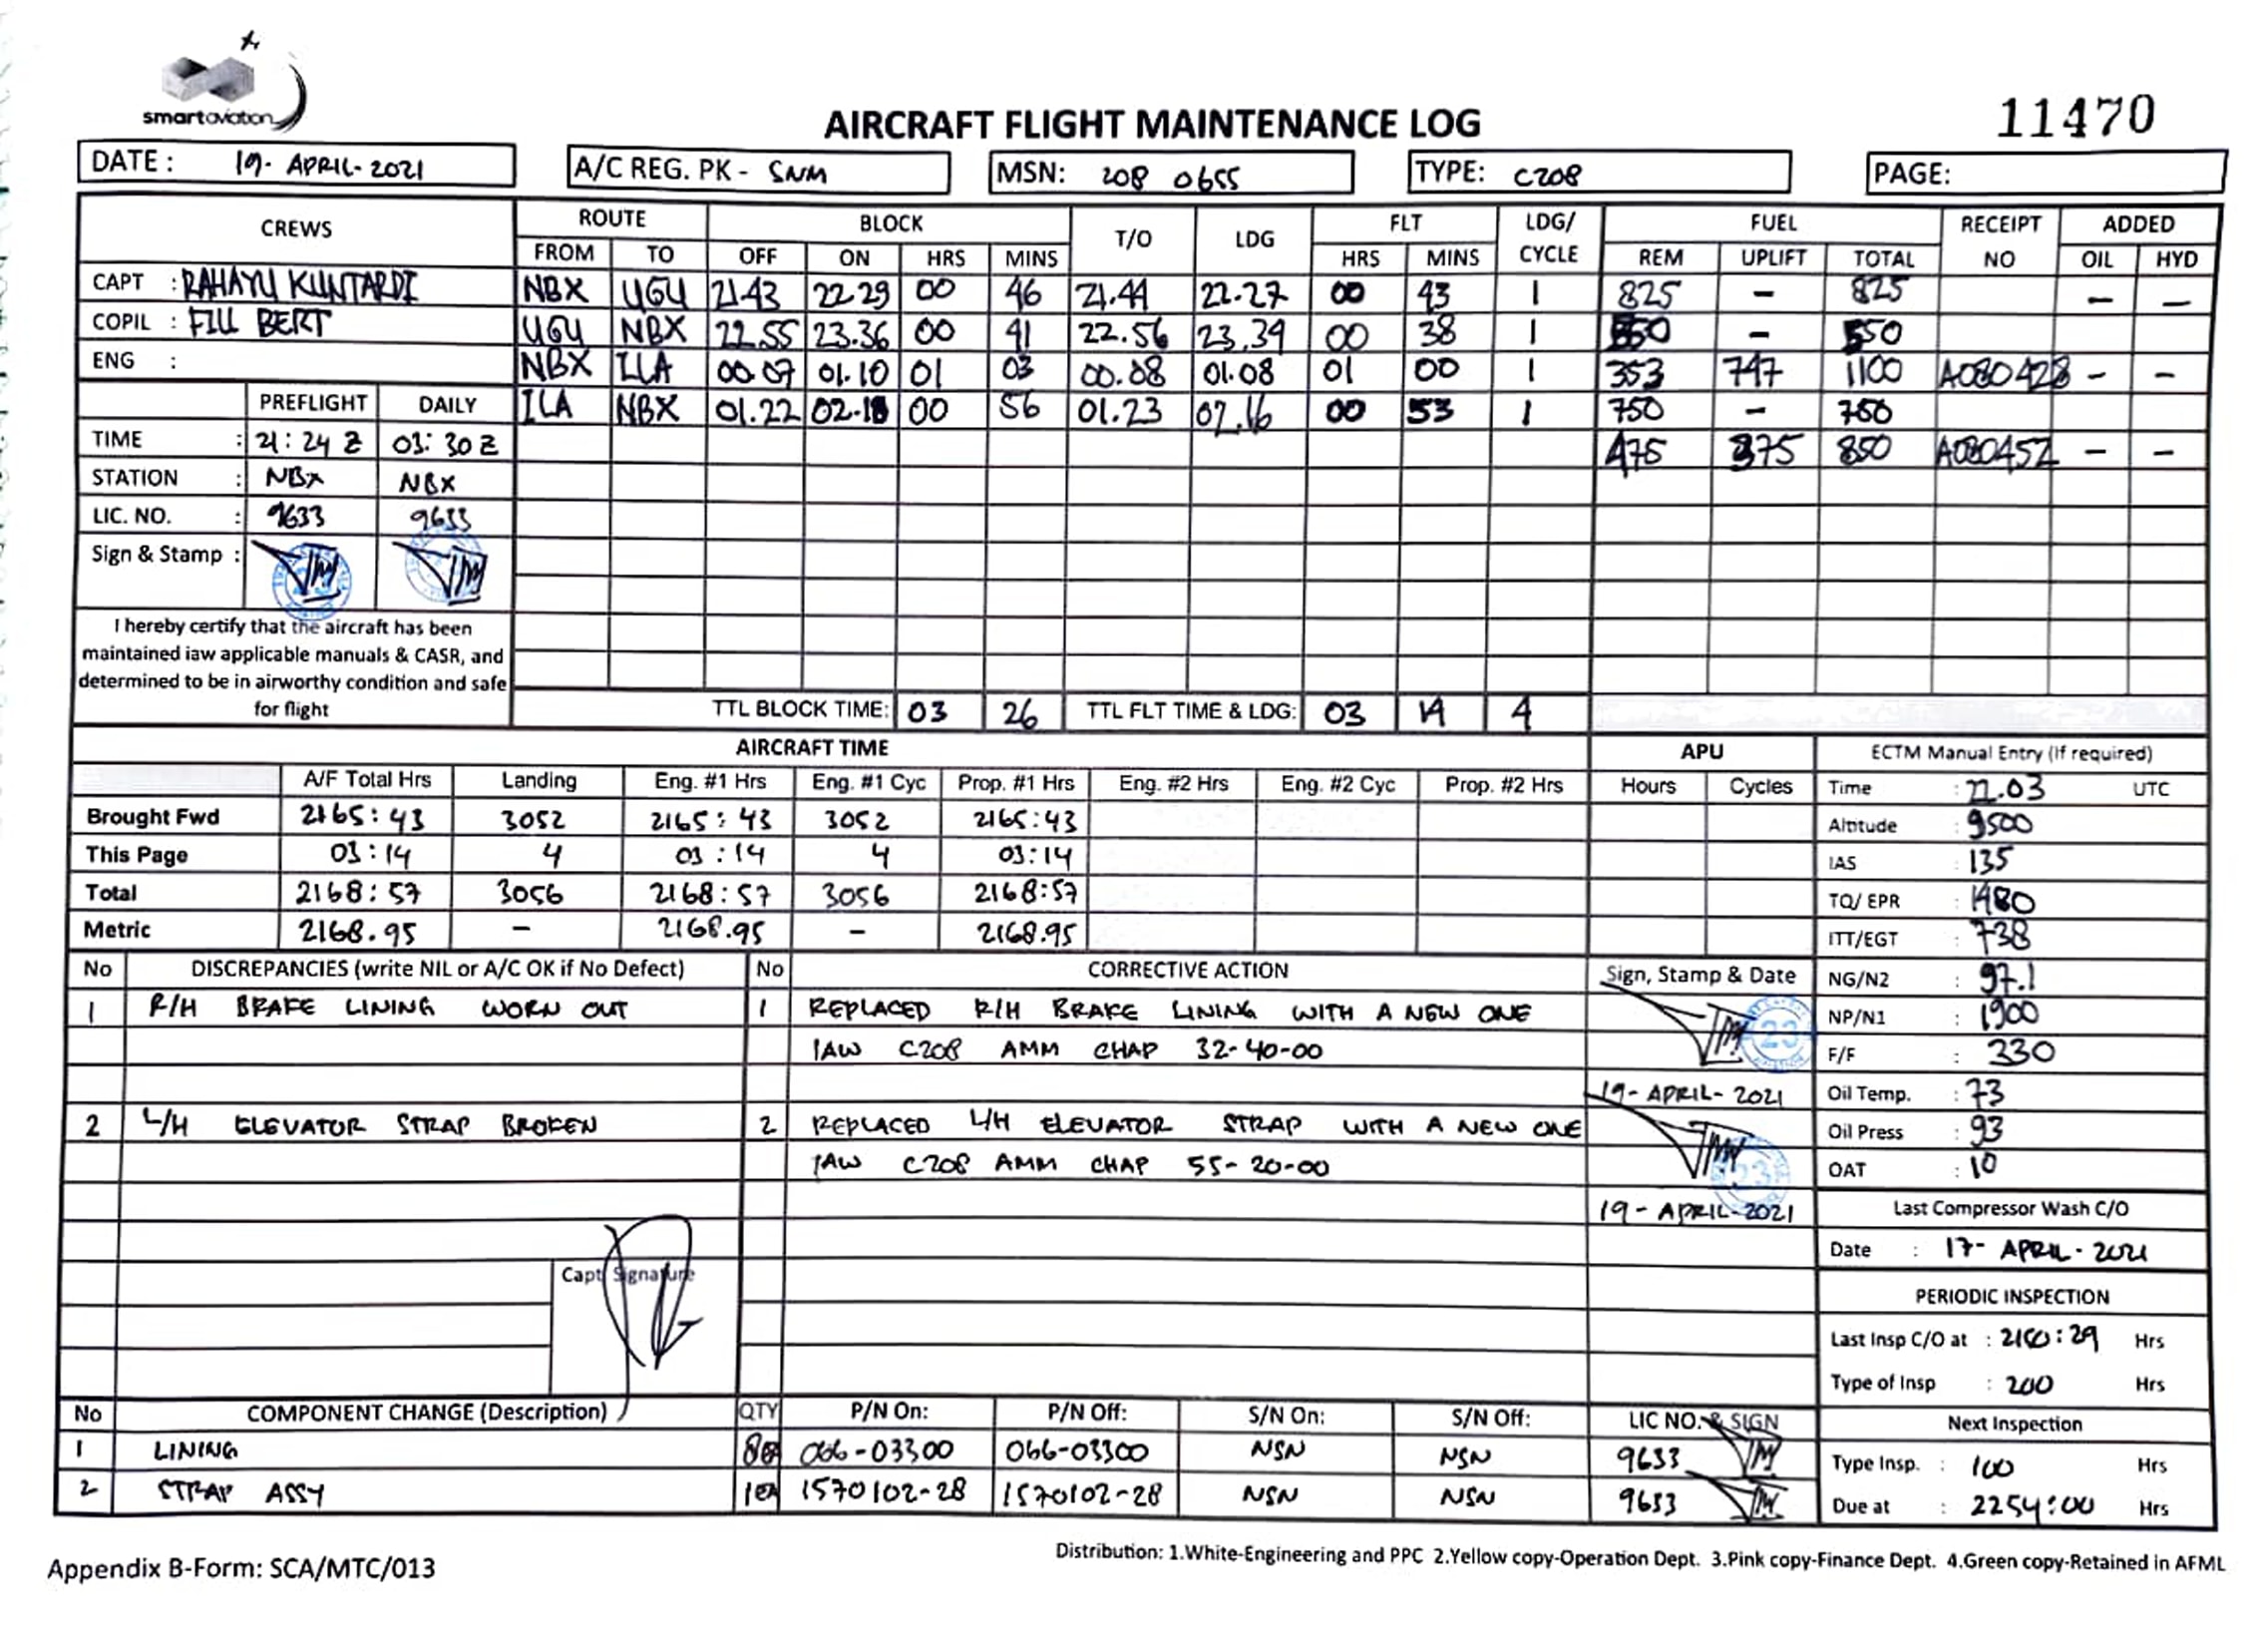 smartaviation
AIRCRAFT FLIGHT MAINTENANCE LOG
11470
DATE : 19- APRIL-2021
A/C REG. PK - SNM
MSN: 208 0655
TYPE: C208
PAGE:
CREWS ROUTE BLOCK T/O LDG FLT LDG/ CYCLE FUEL RECEIPT NO ADDED
FROM TO OFF ON HRS MINS HRS MINS REM UPLIFT TOTAL OIL HYD
CAPT : RAHAYU KUNTARDI NBX UGU 21.43 22.29 00 46 21.44 22.27 00 43 1 825 - 825 - -
COPIL : FILL BERT UGU NBX 22.55 23.36 00 41 22.56 23.34 00 38 1 550 - 550
ENG : NBX ILA 00.07 01.10 01 03 00.08 01.08 01 00 1 353 747 1100 A080428 - -
PREFLIGHT DAILY ILA NBX 01.22 02.18 00 56 01.23 02.16 00 53 1 750 - 750
TIME : 21:24 Z 03:30 Z 475 375 850 A080452 - -
STATION : NBX NBX
LIC. NO. : 9633 9633
Sign & Stamp :
I hereby certify that the aircraft has been
maintained iaw applicable manuals & CASR, and
determined to be in airworthy condition and safe
for flight
TTL BLOCK TIME: 03 26 TTL FLT TIME & LDG: 03 14 4
AIRCRAFT TIME APU ECTM Manual Entry (If required)
A/F Total Hrs Landing Eng. #1 Hrs Eng. #1 Cyc Prop. #1 Hrs Eng. #2 Hrs Eng. #2 Cyc Prop. #2 Hrs Hours Cycles Time : 22.03 UTC
Brought Fwd 2165:43 3052 2165:43 3052 2165:43 Altitude : 9500
This Page 03:14 4 03:14 4 03:14 IAS : 135
Total 2168:57 3056 2168:57 3056 2168:57 TQ/ EPR : 1480
Metric 2168.95 - 2168.95 - 2168.95 ITT/EGT : 738
No DISCREPANCIES (write NIL or A/C OK if No Defect) No CORRECTIVE ACTION Sign, Stamp & Date NG/N2 : 97.1
1 R/H BRAKE LINING WORN OUT 1 REPLACED R/H BRAKE LINING WITH A NEW ONE 23 NP/N1 : 1900
IAW C208 AMM CHAP 32-40-00 F/F : 330
19-APRIL-2021 Oil Temp. : 73
2 L/H ELEVATOR STRAP BROKEN 2 REPLACED L/H ELEVATOR STRAP WITH A NEW ONE Oil Press : 93
IAW C208 AMM CHAP 55-20-00 23 OAT : 10
19-APRIL-2021 Last Compressor Wash C/O
Date : 17-APRIL-2021
Capt Signature
PERIODIC INSPECTION
Last Insp C/O at : 2150:29 Hrs
Type of Insp : 200 Hrs
No COMPONENT CHANGE (Description) QTY P/N On: P/N Off: S/N On: S/N Off: LIC NO. & SIGN Next Inspection
1 LINING 8EA 066-03300 066-03300 NSN NSN 9633 Type Insp. : 100 Hrs
2 STRAP ASSY 1EA 1570102-28 1570102-28 NSN NSN 9633 Due at : 2254:00 Hrs
Appendix B-Form: SCA/MTC/013
Distribution: 1.White-Engineering and PPC 2.Yellow copy-Operation Dept. 3.Pink copy-Finance Dept. 4.Green copy-Retained in AFML